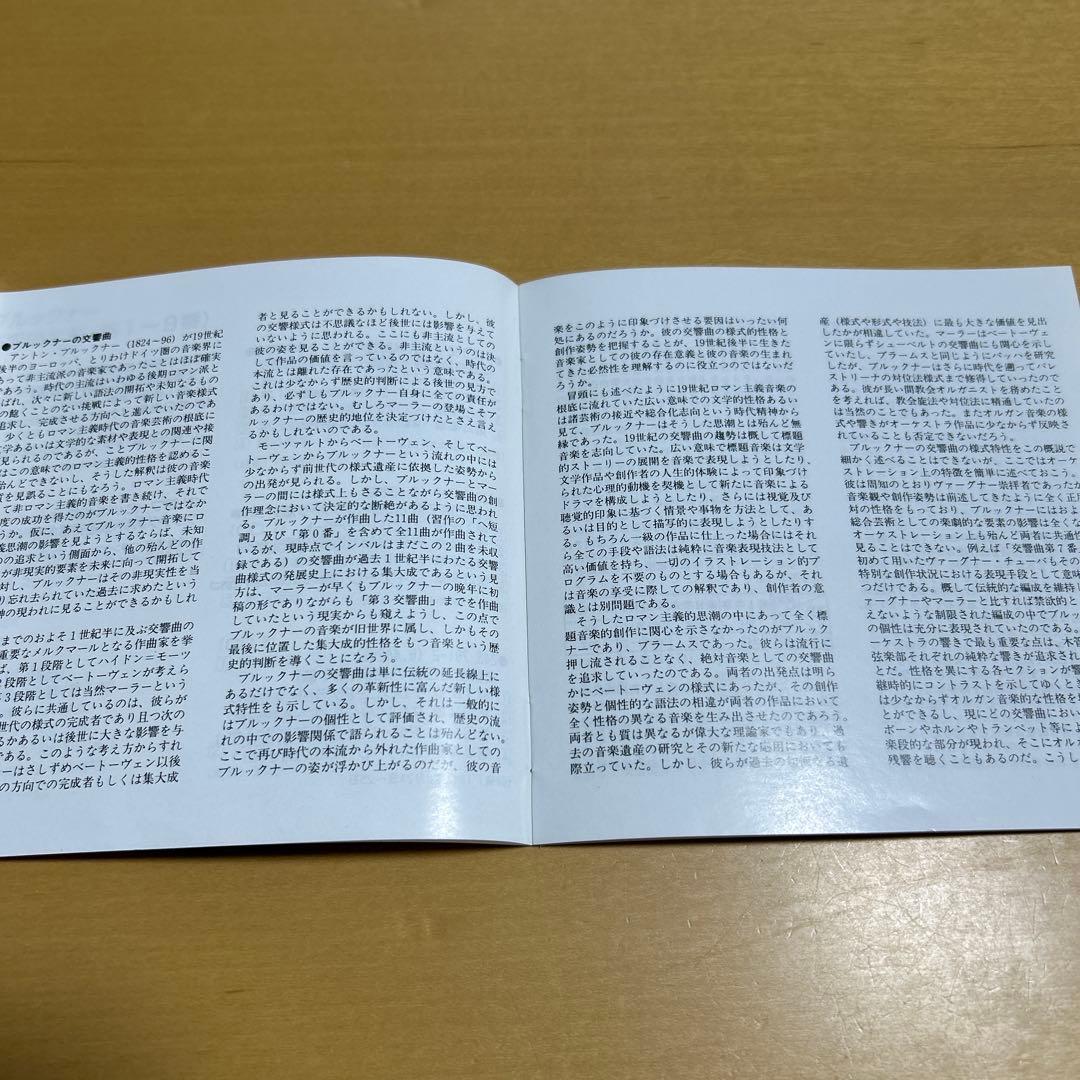 ●ブルックナーの交響曲
アントン・ブルックナー(1824－96)が19世紀
後半のヨーロッパ、とりわけドイツ圏の音楽界に
あって非主流派の音楽家であったことはほぼ確実
であろう。時代の主流はいわゆる後期ロマン派と
ばれ、次々に新しい語法の開拓や未知なるもの
の飽くことのない挑戦によって新しい音楽様式
追求し、完成させる方向へと進んでいたのであ
少くともロマン主義時代の音楽芸術の根底に
文学あるいは文学的な素材や表現との関連や接
見られるのであるが、ことブルックナーに関
ばこの意味でのロマン主義的性格を認めるこ
殆んどできないし、そうした解釈は彼の音楽
質を見誤ることにもなろう。ロマン主義時代
て非ロマン主義的音楽を書き続け、それで
度の成功を得たのがブルックナーではなか
うか。仮に、あえてブルックナー音楽にロ
義思潮の影響を見ようとするならば、未知
の追求という側面から、他の殆んどの作
が非現実的要素を未来に向って開拓して
対し、ブルックナーはその非現実性を当
り忘れ去られていた過去に求めたという
神の現われに見ることができるかもしれ
までのおよそ1世紀半に及ぶ交響曲の
重要なメルクマールとなる作曲家を挙
ば、第1段階としてハイドン＝モーツ
2段階としてベートーヴェンが考えら
3段階には当然マーラーという
。彼らに共通しているのは、彼らが
世代の様式の完成者であり且つ次の
るかあるいは後世に大きな影響を与
である。このような考え方からすれ
ーはさしずめベートーヴェン以後
の方向での完成者もしくは集大成
者と見ることができるかもしれない。しかし、彼
の交響様式は不思議なほど後世には影響を与えて
いないように思われる。ここにも非主流としての
彼の姿を見ることができる。非主流というのは決
して作品の価値を言っているのではなく、時代の
本流とは離れた存在であったという意味である。
これは少なからず歴史的判断による後世の見方で
あり、必ずしもブルックナー自身に全ての責任が
あるわけではない。むしろマーラーの登場こそブ
ルックナーの歴史的地位を決定づけたとさえ言え
るかもしれないのである。
モーツァルトからベートーヴェン、そしてベー
トーヴェンからブルックナーという流れの中には
少なからず前世代の様式遺産に依拠した姿勢から
の出発が見られる。しかし、ブルックナーとマー
ラーの間には様式上もさることながら交響曲の創
作理念において決定的な断絶があるように思われ
る。ブルックナーが作曲した11曲(習作の「ヘ短
調」及び「第0番」を含めて全11曲が作曲されて
いるが、現時点でインバルはまだこの2曲を未収
録である)の交響曲が過去1世紀半にわたる交響
曲様式の発展史上における集大成であるという見
方は、マーラーが早くもブルックナーの晩年に初
稿の形でありながらも「第3交響曲」までを作曲
していたという現実からも窺えようし、この点で
ブルックナーの音楽が旧世界に属し、しかもその
最後に位置した集大成的性格をもつ音楽という歴
史的判断を導くことになろう。
ブルックナーの交響曲は単に伝統の延長線上に
あるだけでなく、多くの革新性に富んだ新しい様
式特性をも示している。しかし、それは一般的に
はブルックナーの個性として評価され、歴史の流
れの中での影響関係で語られることは殆んどない。
ここで再び時代の本流から外れた作曲家としての
ブルックナーの姿が浮かび上がるのだが、彼の音
楽をこのように印象づけさせる要因はいったい何
処にあるのだろうか。彼の交響曲の様式的性格と
創作姿勢を把握することが、19世紀後半に生きた
音楽家としての彼の存在意義と彼の音楽の生まれ
てきた必然性を理解するのに役立つのではないだ
ろうか。
冒頭にも述べたように19世紀ロマン主義音楽の
根底に流れていた広い意味での文学的性格あるい
は諸芸術の接近や総合化志向という時代精神から
見て、ブルックナーはそうした思潮とは殆んど無
縁であった。19世紀の交響曲の趨勢は概して標題
音楽を志向していた。広い意味で標題音楽は文学
的ストーリーの展開を音楽で表現しようとしたり、
文学作品や創作者の人生的体験によって印象づけ
られた心理的動機を契機として新たに音楽による
ドラマを構成しようとしたり、さらには視覚及び
聴覚的印象に基づく情景や事物を方法として、あ
るいは目的として描写的に表現しようとしたりす
る。もちろん一級の作品に仕上った場合にはそれ
ら全ての手段や語法は純粋に音楽表現技法として
高い価値を持ち、一切のイラストレーション的プ
ログラムを不要のものとする場合もあるが、それ
は音楽の享受に際しての解釈であり、創作者の意
識とは別問題である。
そうしたロマン主義的思潮の中にあって全く標
題音楽的創作に関心を示さなかったのがブルック
ナーであり、ブラームスであった。彼らは流行に
押し流されることなく、絶対音楽としての交響曲
を追求していったのである。両者の出発点は明ら
かにベートーヴェンの様式にあったが、その創作
姿勢と個性的な語法の相違が両者の作品において
全く性格の異なる音楽を生み出させたのであろう。
両者とも質は異なるが偉大な理論家でもあり、過
去の音楽遺産の研究とその新たな応用においても
際立っていた。しかし、彼らが過去の如何なる遺
産(様式や形式や技法)に最も大きな価値を見出
したかが相違していた。マーラーはベートーヴェ
ンに限らずシューベルトの交響曲にも関心を示し
ていたし、ブラームスと同じようにバッハを研究
したが、ブルックナーはさらに時代を遡ってパレ
ストリーナの対位法様式まで修得していったので
ある。彼が長い間教会オルガニストを務めたこと
を考えれば、教会旋法や対位法に精通していたの
は当然のことでもあった。またオルガン音楽の様
式や響きがオーケストラ作品に少なからず反映さ
れていることも否定できないだろう。
ブルックナーの交響曲の様式特性をこの概説で
細かく述べることはできないが、ここではオーケ
ストレーション上の特徴を簡単に述べておこう。
彼は周知のとおりヴァーグナー崇拝者であったが
音楽観や創作姿勢は前述してきたように全く正反
対の性格をもっており、ブルックナーにはおよ
総合芸術としての楽劇的な要素の影響は全くな
オーケストレーション上も殆んど両者に共通性
見ることはできない。例えば「交響曲第7番」
初めて用いたヴァーグナー・チューバもその
特別な創作状況における表現手段として意味
つだけである。概して伝統的な編成を維持し
ァーグナーやマーラーと比すれば禁欲的とさ
えないような制限された編成の中でブルック
の個性は充分に表現されていたのである。
ケストラの響きで最も重要な点は、木
弦楽部それぞれの純粋な響きが追求され
とだ。性格を異にする各セクションが響
継時的にコントラストを示してゆくとき
は少なからずオルガン音楽的な性格を
とができるし、現にどの交響曲におい
ボーンやホルンやトランペット等によ
楽段的な部分が現われ、そこにオル
残響を聴くこともあるのだ。こうし